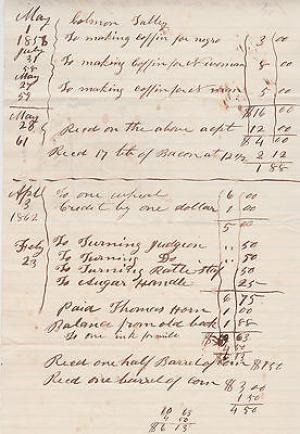 May 1 1858 Colmon Talley
To making coffin for negro 3 00
July 31 58 To making coffin for woman 8 00
May 27 59 To making coffin for man 5 00
$16 00
May 28 61 Recd on the above acpt 12 00
$4 00
Recd 17 lb of Bacon at 12½ 2 12
1 88
Apl 3 1862 To one 6 00
Credit by one dollar 1 00
5 00
July 23 To Turning Judgeon 50
To Turning Do 50
To Turning Rattle Staf 50
To Auger Handle 25
6 75
Paid Thomas Horn 1 00
Balance from old book 1 88
To one 63
4 50
6 13
Recd one half Barrel of corn $1 50
Recd one barrel of corn $3 00
1 50
4 50
10 63
4 50
$6 13